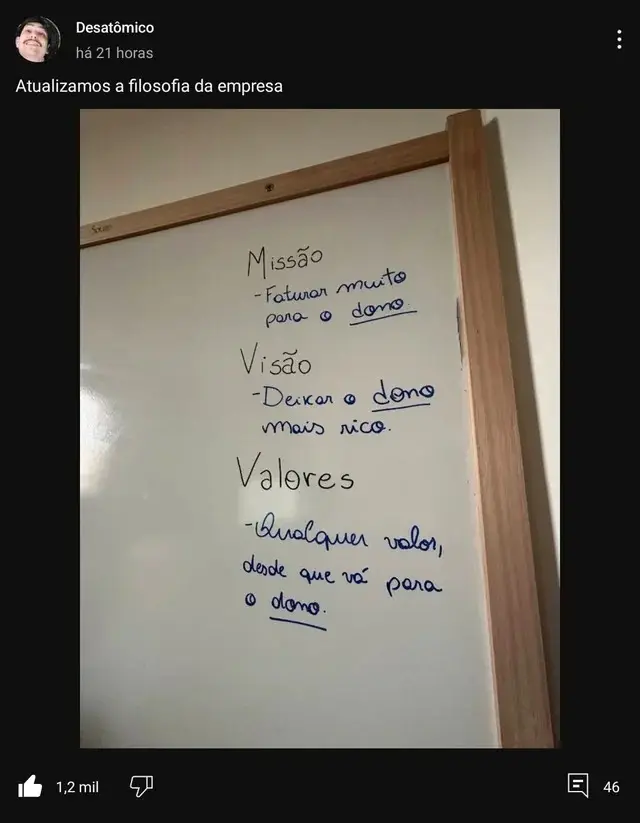 Desatômico
há 21 horas
Atualizamos a filosofia da empresa
Missão
-Faturar muito
para o dono.
Visão
-Deixar o dono
mais rico.
Valores
-Qualquer valor,
desde que vá para
o dono.
1,2 mil
46